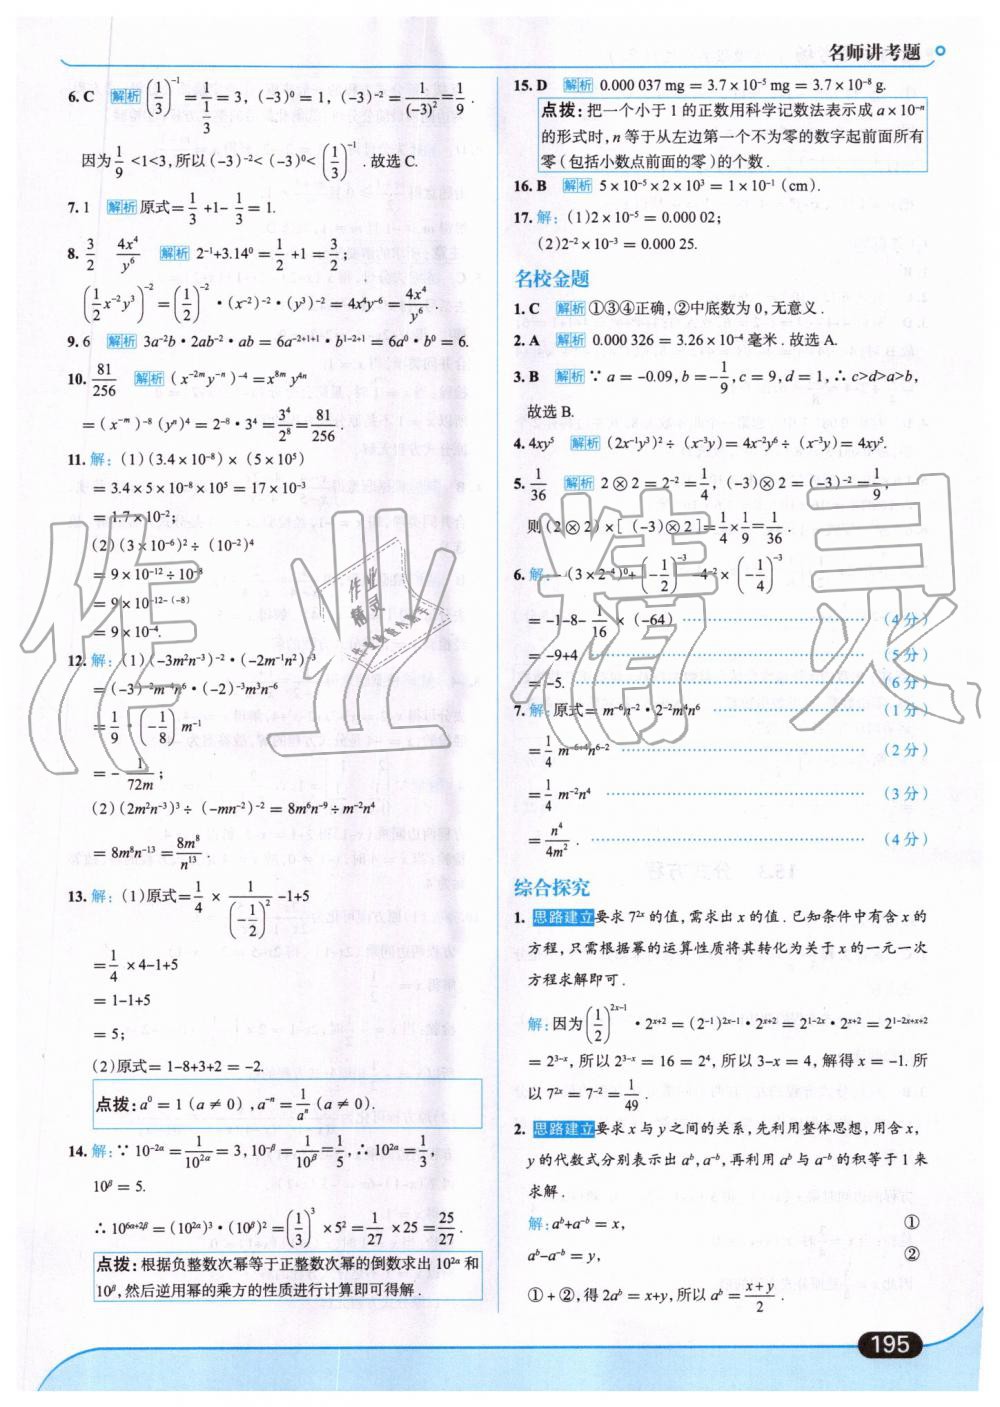 名师讲考题
6. C 解析 (1/3)⁻¹ = 1/(1/3) = 3, (-3)⁰ = 1, (-3)⁻² = 1/(-3)² = 1/9.
因为 1/9 <1<3, 所以 (-3)⁻²< (-3)⁰< (1/3)⁻¹. 故选 C.
7. 1 解析 原式= 1/3 +1- 1/3 = 1.
8. 3/2 4x⁴/y⁶ 解析 2⁻¹+3.14⁰ = 1/2 +1 = 3/2;
(1/2 x⁻²y³)⁻² = (1/2)⁻² · (x⁻²)⁻² · (y³)⁻² = 4x⁴y⁻⁶ = 4x⁴/y⁶.
9. 6 解析 3a⁻²b · 2ab⁻² · ab = 6a⁻²⁺¹⁺¹ · b¹⁻²⁺¹ = 6a⁰ · b⁰ = 6.
10. 81/256 解析 (x⁻²ᵐy⁻ⁿ)⁻⁴ = x⁸ᵐy⁴ⁿ
= (x⁻ᵐ)⁻⁸ (yⁿ)⁴ = 2⁻⁸ · 3⁴ = 3⁴/2⁸ = 81/256.
11. 解: (1) (3.4 × 10⁻⁸) × (5 × 10⁵)
= 3.4 × 5 × 10⁻⁸ × 10⁵ = 17 × 10⁻³
= 1.7 × 10⁻²;
(2) (3 × 10⁻⁶)² ÷ (10⁻²)⁴
= 9 × 10⁻¹² ÷ 10⁻⁸
= 9 × 10⁻¹²⁻⁽⁻⁸⁾
= 9 × 10⁻⁴.
12. 解: (1) (-3m²n⁻³)⁻² · (-2m⁻¹n²)⁻³
= (-3)⁻²m⁻⁴n⁶ · (-2)⁻³m³n⁻⁶
= 1/9 · (-1/8) m⁻¹
= - 1/72m;
(2) (2m²n⁻³)³ ÷ (-mn⁻²)⁻² = 8m⁶n⁻⁹ ÷ m⁻²n⁴
= 8m⁸n⁻¹³ = 8m⁸/n¹³.
13. 解: (1)原式= 1/4 × 1/(-1/2)² -1+5
= 1/4 × 4-1+5
= 1-1+5
= 5;
(2)原式= 1-8+3+2 = -2.
点拨: a⁰ = 1 (a ≠ 0), a⁻ⁿ = 1/aⁿ (a ≠ 0).
14. 解: ∵ 10⁻²ᵅ = 1/10²ᵅ = 3, 10⁻ᵝ = 1/10ᵝ = 1/5, ∴ 10²ᵅ = 1/3,
10ᵝ = 5.
∴ 10⁶ᵅ⁺²ᵝ = (10²ᵅ)³ · (10ᵝ)² = (1/3)³ × 5² = 1/27 × 25 = 25/27.
点拨: 根据负整数次幂等于正整数次幂的倒数求出 10²ᵅ 和
10ᵝ, 然后逆用幂的乘方的性质进行计算即可得解.
15. D 解析 0.000 037 mg = 3.7 × 10⁻⁵ mg = 3.7 × 10⁻⁸ g.
点拨: 把一个小于 1 的正数用科学记数法表示成 a × 10⁻ⁿ
的形式时, n 等于从左边第一个不为零的数字起前面所有
零(包括小数点前面的零)的个数.
16. B 解析 5 × 10⁻⁵ × 2 × 10³ = 1 × 10⁻¹ (cm).
17. 解: (1)2 × 10⁻⁵ = 0.000 02;
(2)2⁻² × 10⁻³ = 0.000 25.
名校金题
1. C 解析 ①③④正确, ②中底数为 0, 无意义.
2. A 解析 0.000 326 = 3.26 × 10⁻⁴ 毫米. 故选 A.
3. B 解析 ∵ a = -0.09, b = - 1/9, c = 9, d = 1, ∴ c>d>a>b,
故选 B.
4. 4xy⁵ 解析 (2x⁻¹y³)² ÷ (x⁻³y) = 4x⁻²y⁶ ÷ (x⁻³y) = 4xy⁵.
5. 1/36 解析 2 ⊗ 2 = 2⁻² = 1/4, (-3) ⊗ 2 = (-3)⁻² = 1/9,
则 (2 ⊗ 2) × [ (-3) ⊗ 2 ] = 1/4 × 1/9 = 1/36.
6. 解: -(3 × 2⁻⁴)⁰ + (-1/2)⁻³ -4⁻² × (-1/4)⁻³
= -1-8- 1/16 × (-64) (4 分)
= -9+4 (5 分)
= -5. (6 分)
7. 解: 原式= m⁻⁶n⁻² · 2⁻²m⁴n⁶ (1 分)
= 1/4 m⁻⁶⁺⁴n⁶⁻² (2 分)
= 1/4 m⁻²n⁴ (3 分)
= n⁴/4m². (4 分)
综合探究
1. 思路建立 要求 7²ˣ 的值, 需求出 x 的值. 已知条件中有含 x 的
方程, 只需根据幂的运算性质将其转化为关于 x 的一元一次
方程求解即可.
解: 因为 (1/2)²ˣ⁻¹ · 2ˣ⁺² = (2⁻¹)²ˣ⁻¹ · 2ˣ⁺² = 2¹⁻²ˣ · 2ˣ⁺² = 2¹⁻²ˣ⁺ˣ⁺²
= 2³⁻ˣ, 所以 2³⁻ˣ = 16 = 2⁴, 所以 3-x = 4, 解得 x = -1. 所
以 7²ˣ = 7⁻² = 1/49.
2. 思路建立 要求 x 与 y 之间的关系, 先利用整体思想, 用含 x,
y 的代数式分别表示出 aᵇ, a⁻ᵇ, 再利用 aᵇ 与 a⁻ᵇ 的积等于 1 来
求解.
解: aᵇ+a⁻ᵇ = x, ①
aᵇ-a⁻ᵇ = y, ②
① + ②, 得 2aᵇ = x+y, 所以 aᵇ = (x+y)/2.
195
作业精灵
作业
精灵